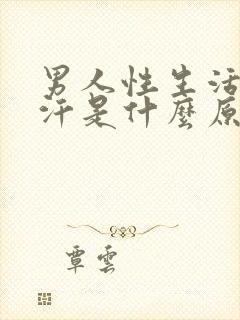 男人性生活
汗是什麼原
覃雲